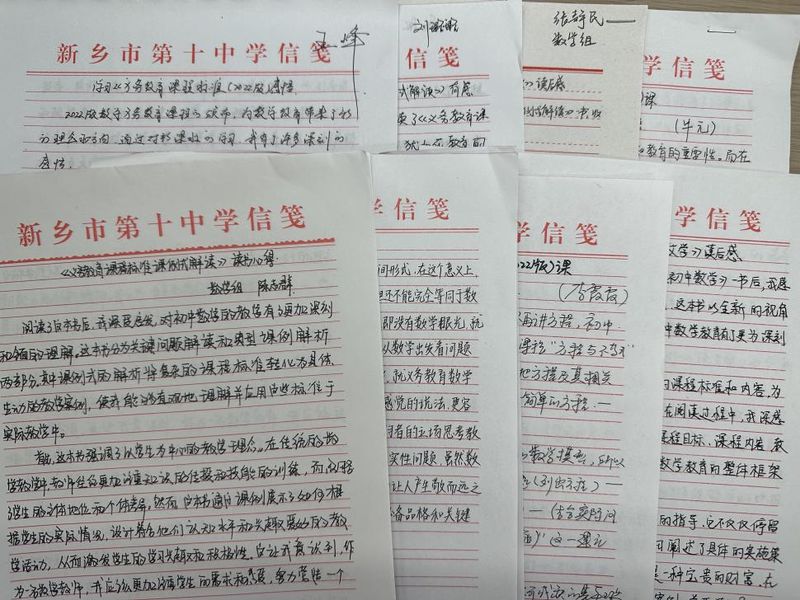 新乡市第十中学信笺
王峰
学习《义务教育课程标准(2022版)》感悟
2022版数学义务教育课程的颁布,为数学教育带来了新
的理念和方向,通过对新课标的学习,我有了许多深刻的
感悟。
信笺
式解读》有感
了《义务教育课
张静民
数学组
》读后感
学信笺
课
(牛元)
和教育的重要性。而在
新乡市第十中学信笺
《义务教育课程标准课例式解读》读书心得
数学组 陈志群
阅读了这本书后,我深受启发,对初中数学的教学有了更加深刻
和全面的理解。这本书分为关键问题解读和类型课例解析
两部分。其中课例式的解析将复杂的课程标准转化为具体
生动的教学案例,使我能够直观地理解并应用这些标准于
实际教学中。
首先,这本书强调了以学生为中心的教学理念。在传统的数
学教学中,教师往往更加注重知识的传授和技能的训练,而忽略
学生的主体地位和个体差异。然而,这本书通过课例展示了如何根
据学生的实际情况,设计符合他们认知水平和兴趣爱好的教
学活动,从而激发学生的学习兴趣和积极性。它让我意识到,作
为一名数学教师,我应该更加注重学生的需求和发展,努力营造一个
学信笺
间形式,在这个意义上,
但还不能完全等同于数
即没有数学眼光,就
从数学出发看问题
就义务教育数学
感觉的说法,更容
用者的立场思考数
实性问题,虽然数
让人产生敬而远之
备品格和关键
学信笺
2022版)课
(李霞霞)
再讲方程,初中
课程"方程与不等式"
把方程及其相关
简单的方程.一
的数学模型,所以
(列出方程)—
—(结合实际问
这一单元
学信笺
数学》读后感
初中数学》一书后,我感
这本书以全新的视角
中数学教育有了更为深刻
的课程标准和内容,为
在阅读过程中,我深感
课程目标、课程内容、教
数学教育的整体框架
的指导,它不仅仅停留
阐述了具体的实施策
是一种宝贵的财富,在